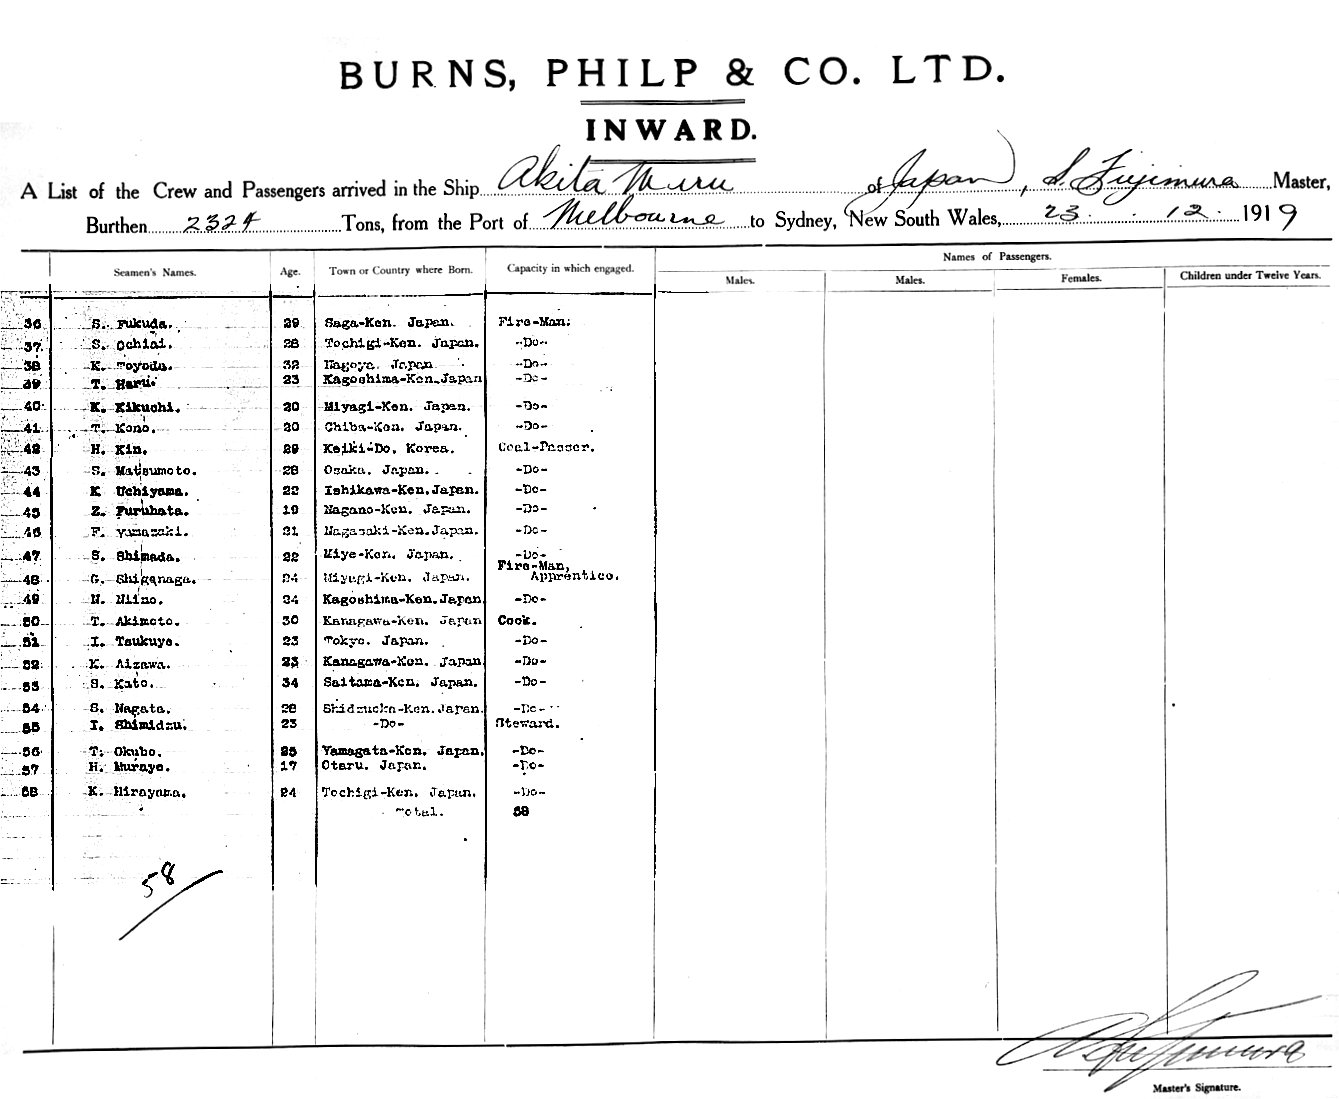 BURNS, PHILP & CO. LTD.
INWARD.
A List of the Crew and Passengers arrived in the Ship Akita Maru of Japan, S. Fujimura Master,
Burthen 2324 Tons, from the Port of Melbourne to Sydney, New South Wales, 23. 12. 1919
Names of Passengers.
Seamen's Names. Age. Town or Country where Born. Capacity in which engaged. Males. Males. Females. Children under Twelve Years.
36 S. Fukuda. 29 Saga-Ken. Japan. Fire-Man.
37 S. Ochiai. 28 Tochigi-Ken. Japan. -Do-
38 K. Toyoda. 32 Nagoya. Japan -Do-
39 T. Haru. 23 Kagoshima-Ken.Japan -Do-
40 K. Kikuchi. 20 Miyagi-Ken. Japan. -Do-
41 T. Kono. 20 Chiba-Ken. Japan. -Do-
42 H. Kin. 29 Keiki-Do. Korea. Coal-Passer.
43 S. Matsumoto. 28 Osaka. Japan. -Do-
44 K Uchiyama. 22 Ishikawa-Ken.Japan. -Do-
45 Z. Furuhata. 19 Nagano-Ken. Japan. -Do-
46 F. Yamasaki. 21 Nagasaki-Ken.Japan. -Do-
47 S. Shimada. 22 Miye-Ken. Japan. -Do-
48 G. Shigenaga. 24 Miyagi-Ken. Japan. Fire-Man, Apprentice.
49 N. Niino. 24 Kagoshima-Ken.Japan. -Do-
50 T. Akimoto. 30 Kanagawa-Ken. Japan Cook.
51 I. Tsukuye. 23 Tokyo. Japan. -Do-
52 K. Aizawa. 23 Kanagawa-Ken. Japan -Do-
53 S. Kato. 34 Saitama-Ken. Japan. -Do-
54 S. Nagata. 28 Shidzuoka-Ken.Japan. -Do-
55 I. Shimidzu. 23 -Do- Steward.
56 T. Okubo. 25 Yamagata-Ken. Japan. -Do-
57 H. Muraye. 17 Otaru. Japan. -Do-
58 K. Hirayama. 24 Tochigi-Ken. Japan. -Do-
Total. 58
58
Master's Signature.